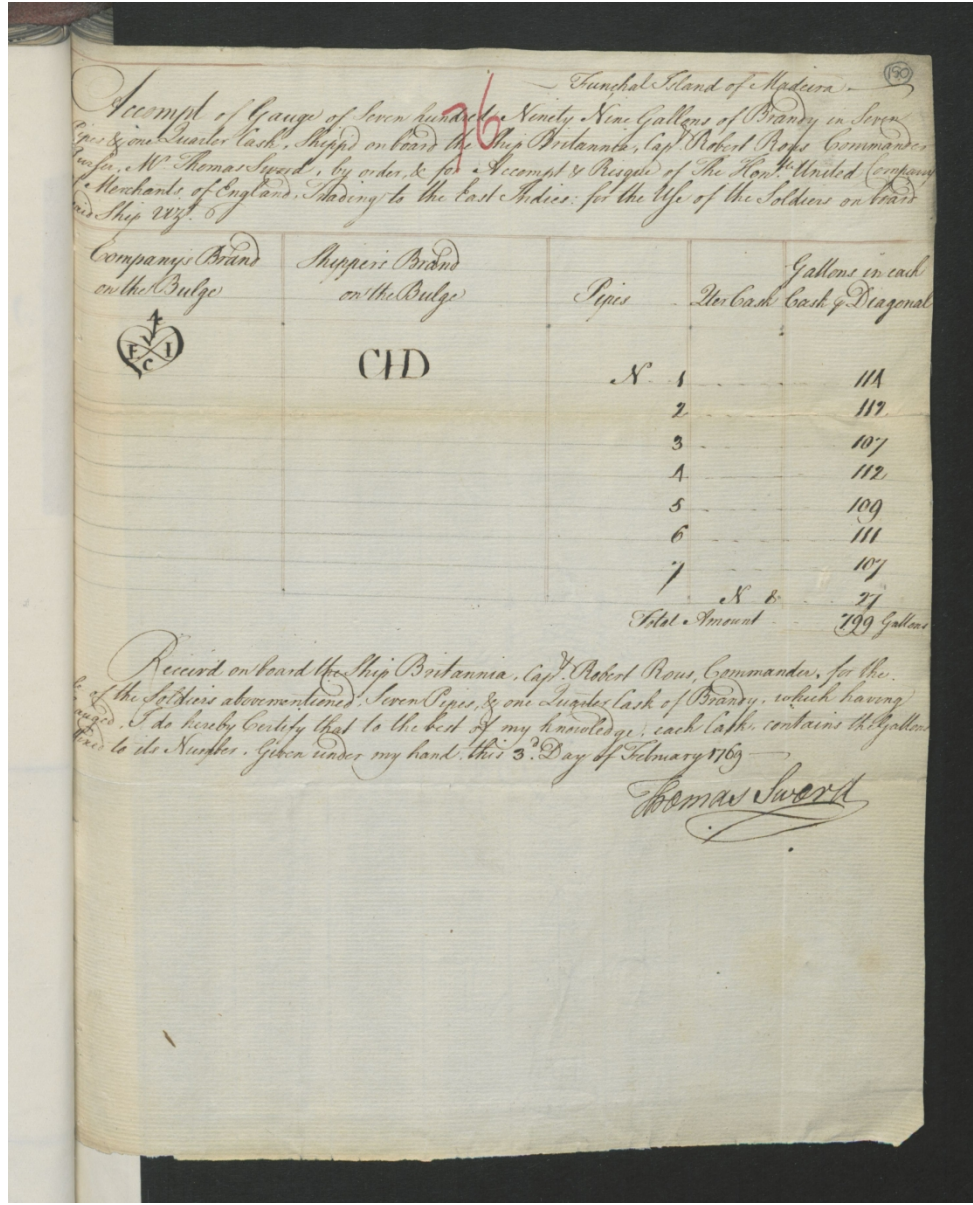 150
Funchal Island of Madeira
76
Accompt of Gauge of Seven hundred Ninety Nine Gallons of Brandy in Seven
Pipes & one Quarter Cask, Shipp'd on board the Ship Britannia, Capt. Robert Rous Commander
Purser, Mr. Thomas Sword, by order, & for Accompt & Risque of The Honble. United Company
of Merchants of England, Trading to the East Indies: for the Use of the Soldiers on board
said Ship vizt.
Company's Brand on the Bulge
Shipper's Brand on the Bulge
Pipes
Qter Cask
Gallons in each Cask p Diagonal
4 V E I C
CHD
N. 1 114
2 112
3 107
4 112
5 109
6 111
7 107
N 8 27
Total Amount 799 Gallons
Receiv'd on board the Ship Britannia, Capt. Robert Rous, Commander, for the
of the Soldiers abovementioned, Seven Pipes, & one Quarter Cask of Brandy, which having
gauged, I do hereby Certify that to the best of my knowledge, each Cask contains the Gallons
to its Number. Given under my hand this 3d. Day of February 1769
Thomas Sword